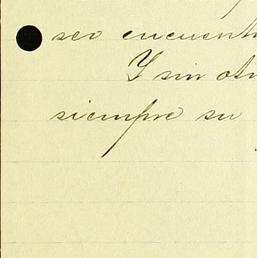 seo encuent
Y sin ot
siempre su